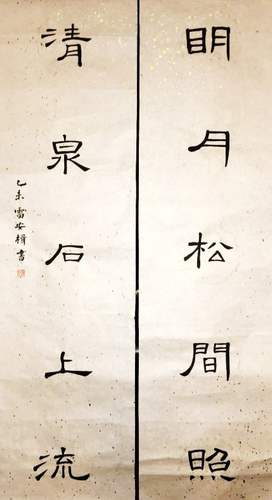 明月松間照
清泉石上流
乙未雷安輯書